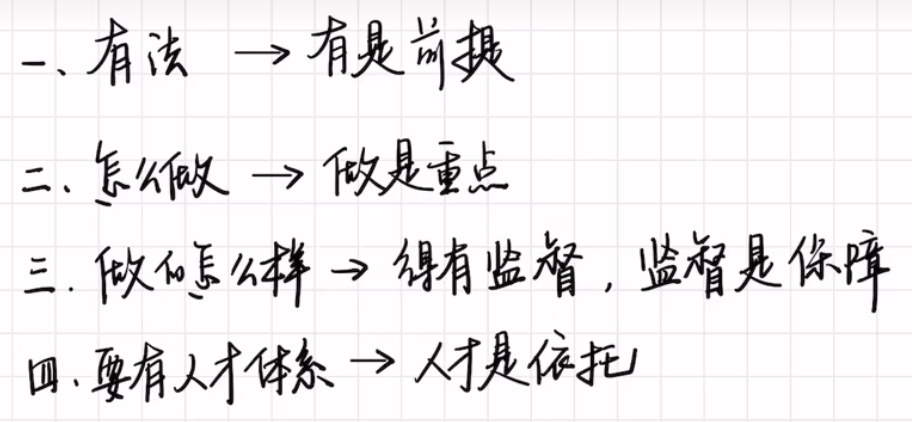 一、有法 → 有是前提
二、怎么做 → 做是重点
三.做的怎么样 → 得有监督，监督是保障
四.要有人才体系 → 人才是依托